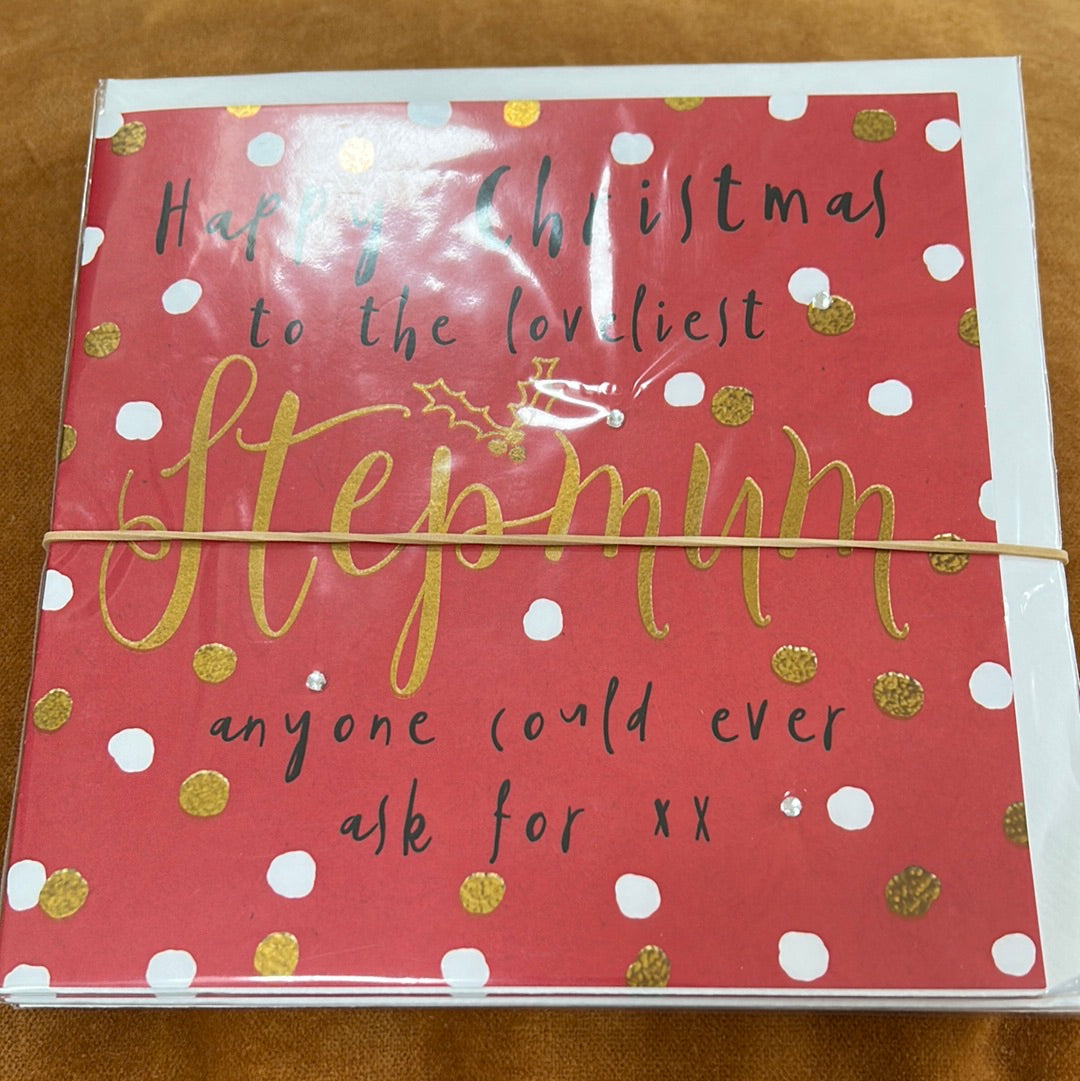 Happy Christmas
to the loveliest
Stepmum
anyone could ever
ask for xx